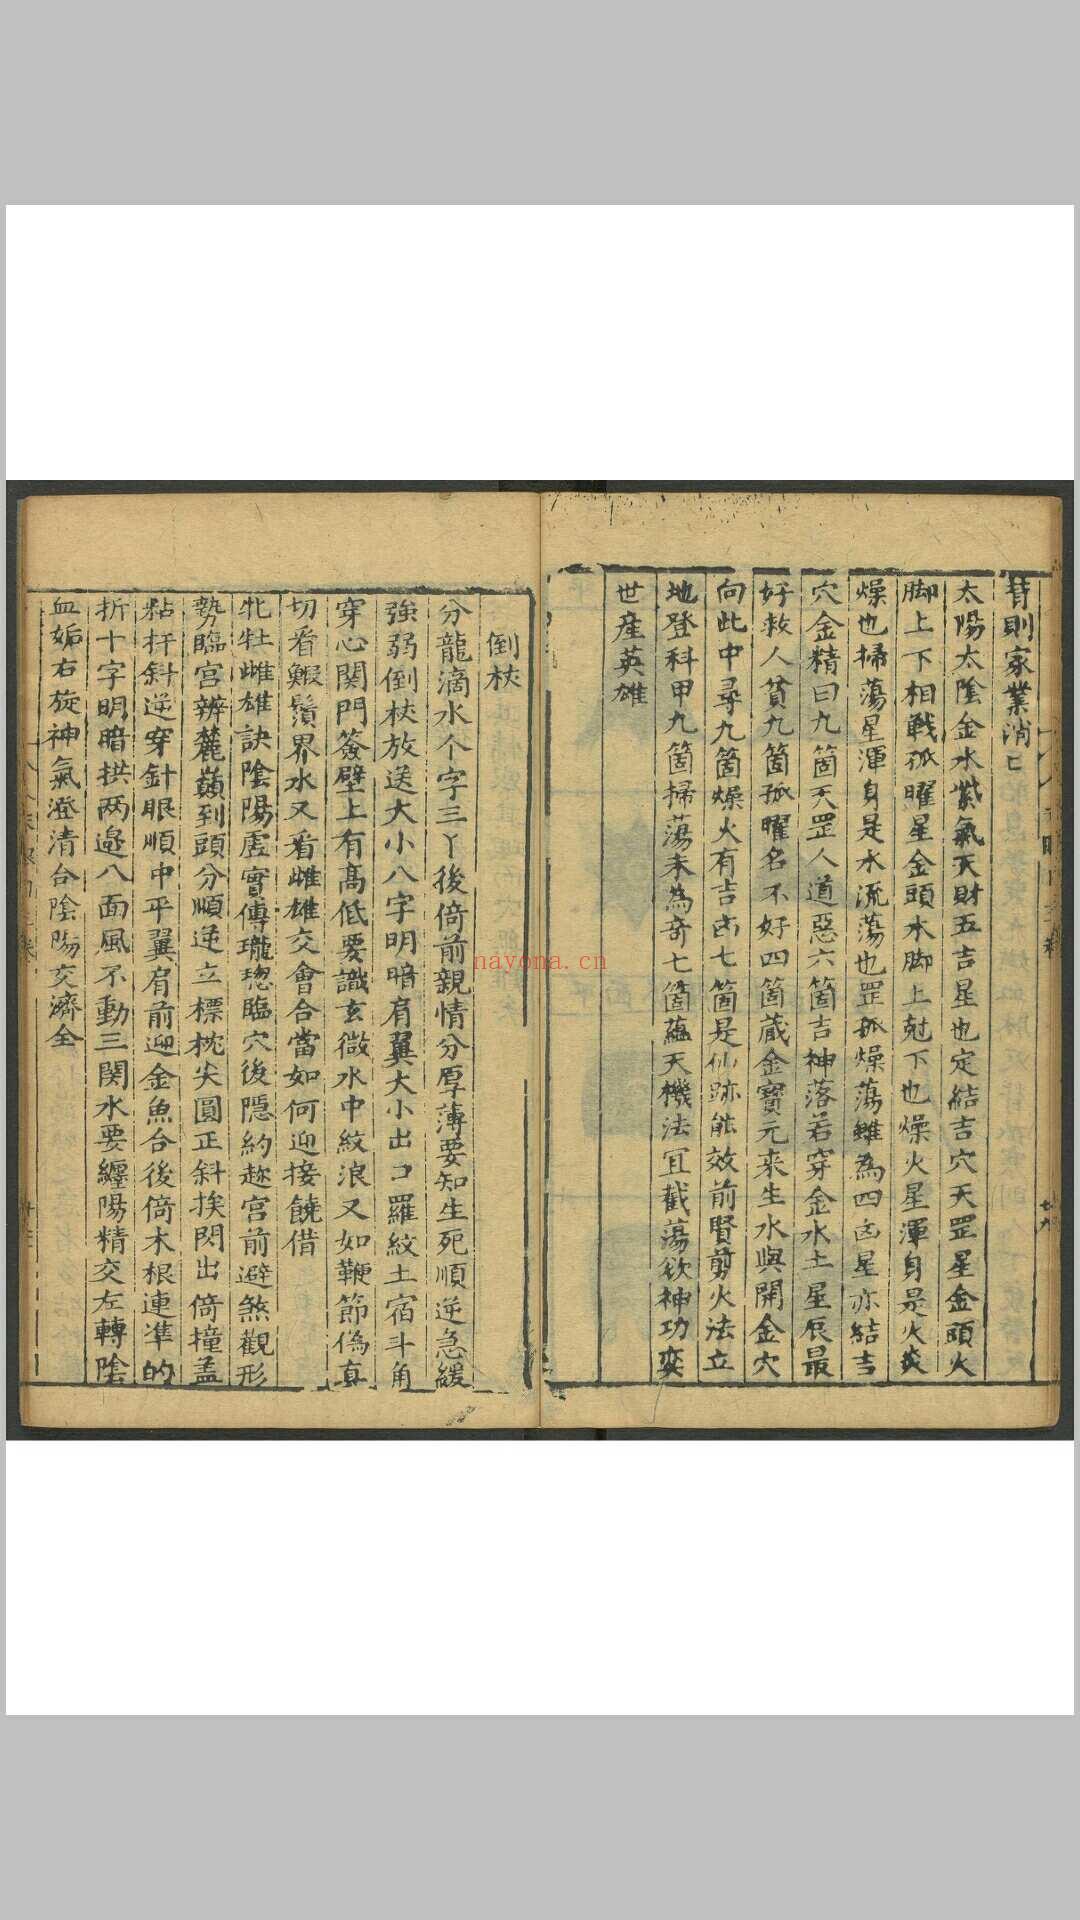 昔則家業消亡
太陽太陰金水紫氣天財五吉星也定結吉穴天罡星金頭火
脚上下相戰孤曜星金頭木脚上尅下也燥火星渾身是火炎
燥也掃蕩星渾身是水流蕩也罡孤燥蕩雖為四凶星亦結吉
穴金精曰九箇天罡人道惡六箇吉神落若穿金水土星辰最
好救人貧九箇孤曜名不好四箇蔵金寶元来生水與開金穴
向此中尋九箇燥火有吉凶七箇是仙跡能效前賢剪火法立
地登科甲九箇掃荡未為奇七箇蘊天機法宜截蕩欲神功奕
世産英雄
廿九
倒杖
分龍滴水个字三丫後倚前親情分厚薄要知生死順逆急緩
強弱倒杖放送大小八字明暗肩翼大小出口羅紋土宿斗角
穿心関門簽壁上有髙低要識玄微水中紋浪又如鞭節偽真
切看鰕鬚界水又看雌雄交會合當如何迎接饒借
牝牡雌雄訣陰陽虛實傳瓏璁臨穴後隱約趂宮前避煞觀形
勢臨宮辨麓巔到頭分順逆立標枕尖圓正斜挨閃出倚撞盖
粘扦斜逆穿針眼順中平翼肩前迎金魚合後倚木根連準的
折十字明暗拱两邉八面風不動三関水要纒陽精交左轉陰
血妬右旋神氣澄清合陰陽交濟全
nayona.cn